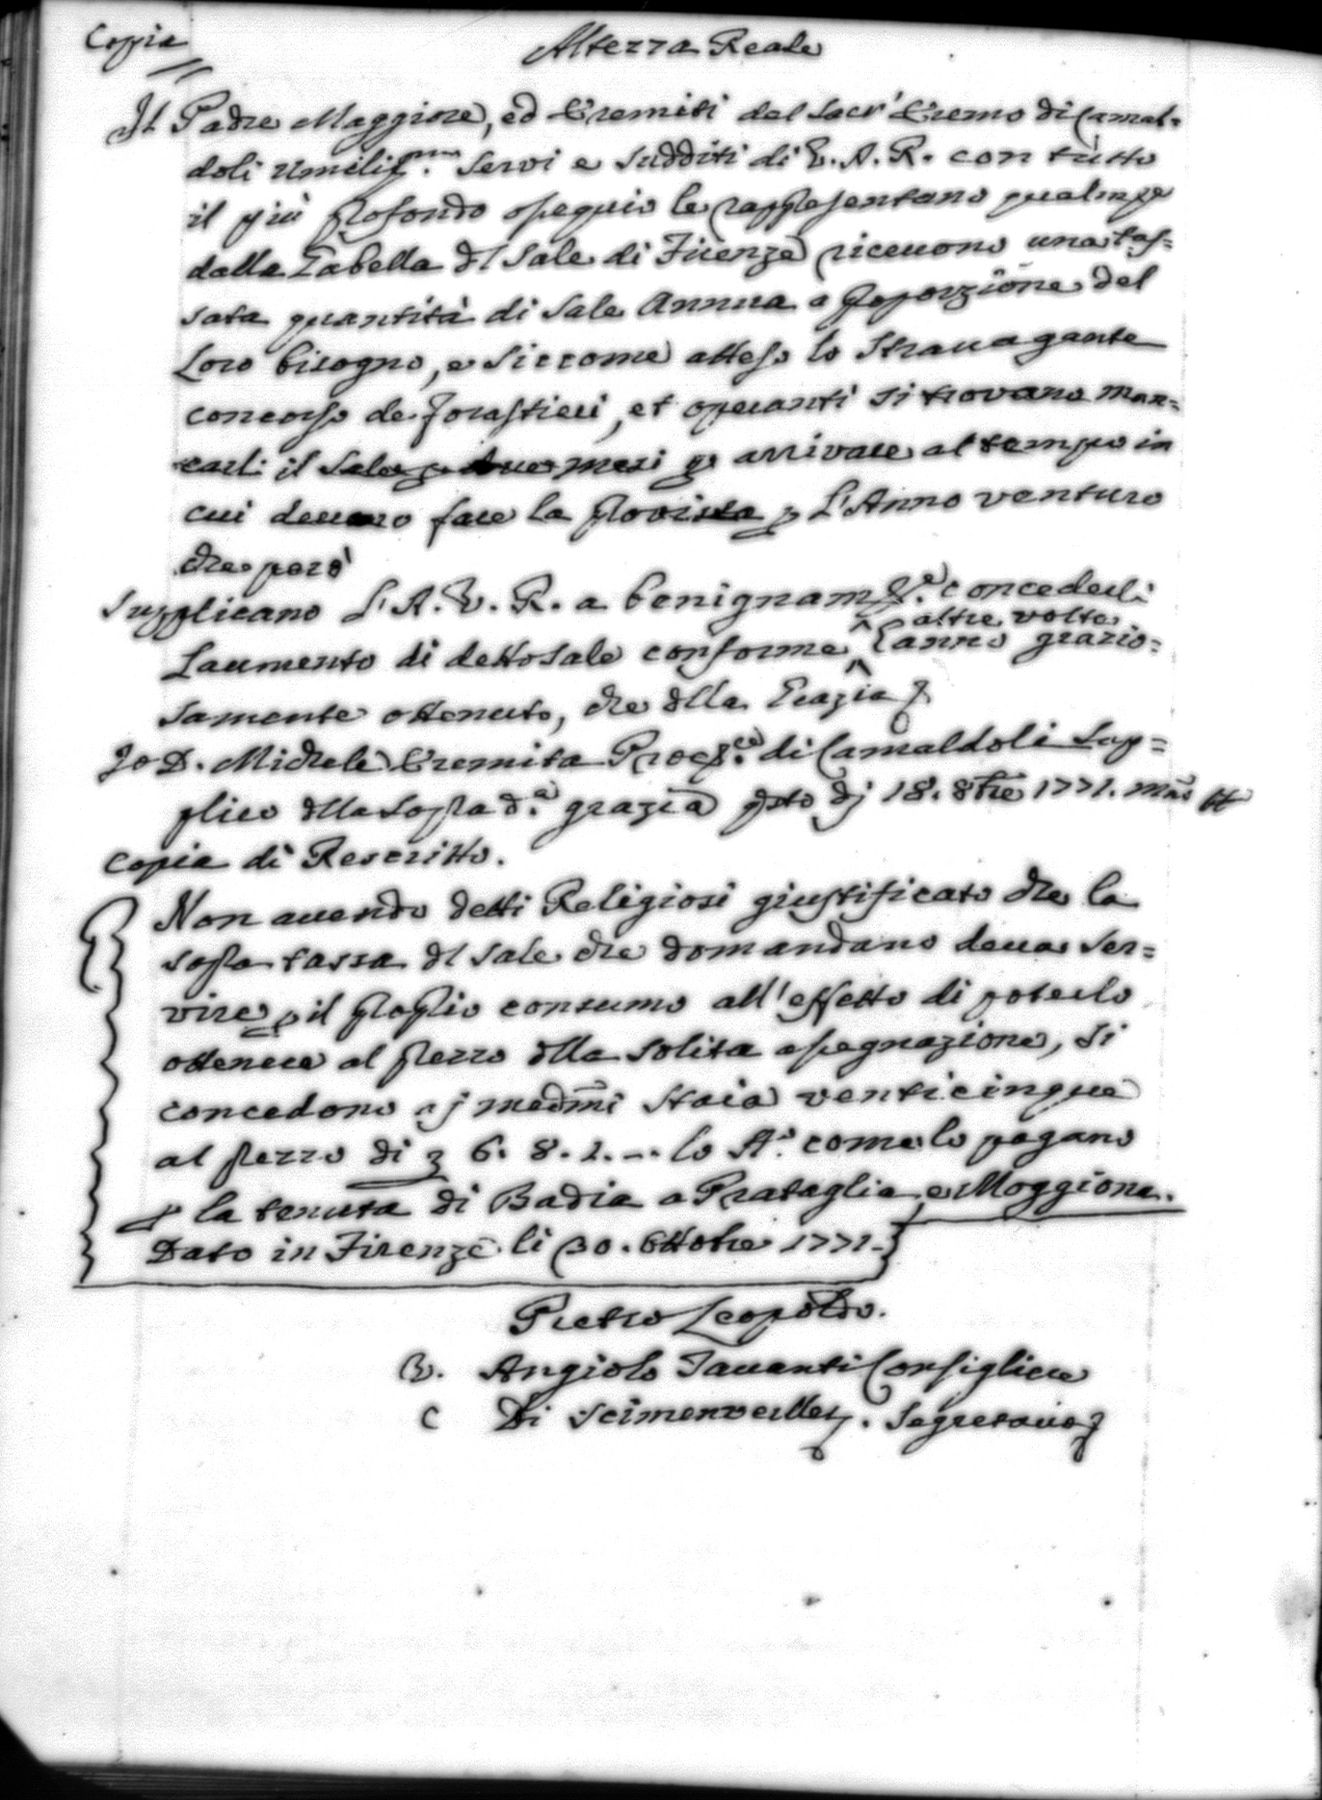 Copia
Altezza Reale
Il Padre Maggiore, ed Eremiti del Sacr' Eremo di Camal-
doli umiliss.mi Servi e Sudditi di V. A. R. con tutto
il più profondo ossequio le rappresentano qualm.e
dalla Gabella dl Sale di Firenze riceuono una tas-
sata quantità di Sale Annua a proporzione del
Loro bisogno, e siccome atteso lo strauagante
concorso de forastieri, et operanti si trovano man-
carli il Sale p due mesi p arrivare al tempo in
cui deuono fare la provista p L'Anno venturo
che però
Supplicano L'A. V. R. a benignam.e concederli
altre volte
Laumento di detto Sale conforme L'anno grazio-
samente ottenuto, che dlla Grazia
Io D. Michele Eremita Proc.re di Camaldoli Sup-
plico dlla sopra d.a grazia qsto dj 18. 8bre 1771. mano
Copia di Rescritto.
Non auendo detti Religiosi giustificato che la
sopra tassa dl Sale che domandano deua ser-
vire p il proprio consumo all'effetto di poterlo
ottenere al prezzo dlla solita assegnazione, si
concedono aj medmi Staia venticinque
al prezzo di 6. 8. 2. lo St.o come lo pagano
p la tenuta di Badia a Prataglia, e Moggiona.
Dato in Firenze li 30. Ottobre 1771.
Pietro Leopoldo.
V. Angiolo Tauanti Consigliere
Di Segretario